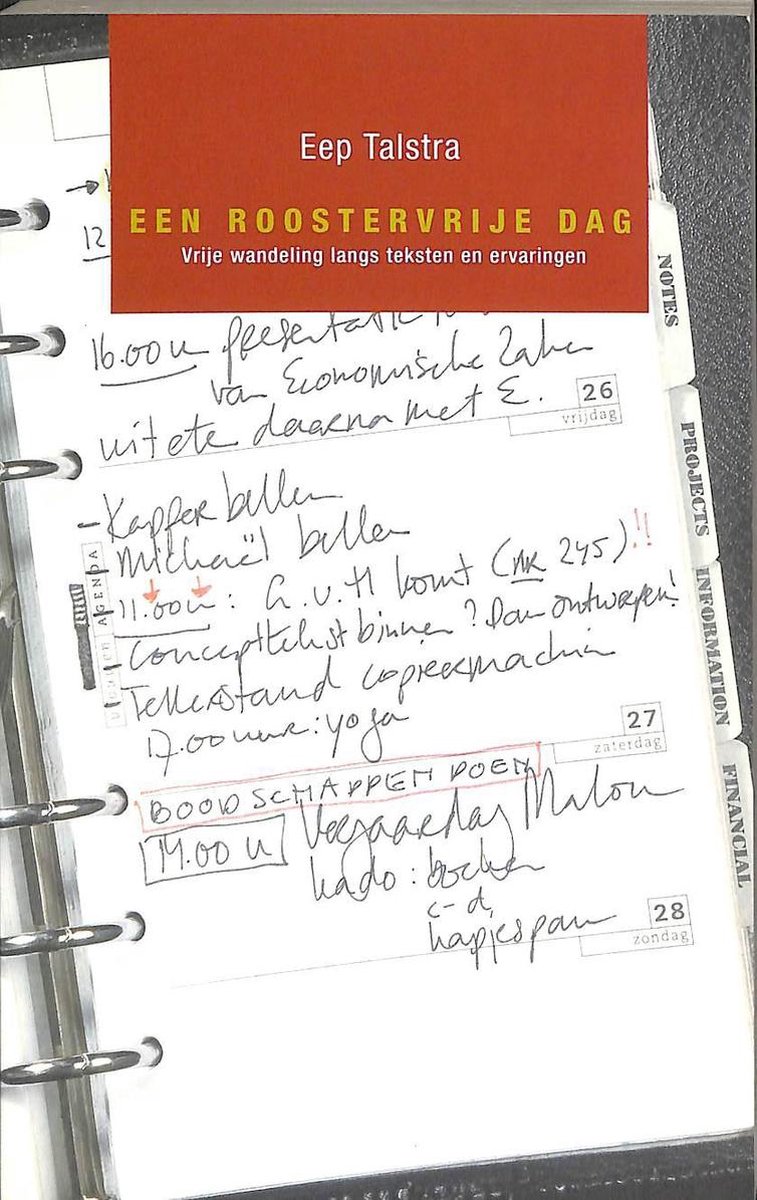 Eep Talstra
EEN ROOSTERVRIJE DAG
Vrije wandeling langs teksten en ervaringen
12
16.00 u presentatie
van Economische Zaken
uit ete daarna met E.
26
vrijdag
- Kapper bellen
Michaël bellen
11.00 u: G.v.H komt (NR 245)!!
Concepttekst binnen? Dan ontwerpen!
Tellerstand copieermachine
17.00 uur: yoga
27
zaterdag
BOODSCHAPPEN DOEN
14.00 u Verjaardag Malou
kado: boeken
c-d,
hapjespan
28
zondag
AGENDA
NOTES
PROJECTS
INFORMATION
FINANCIAL